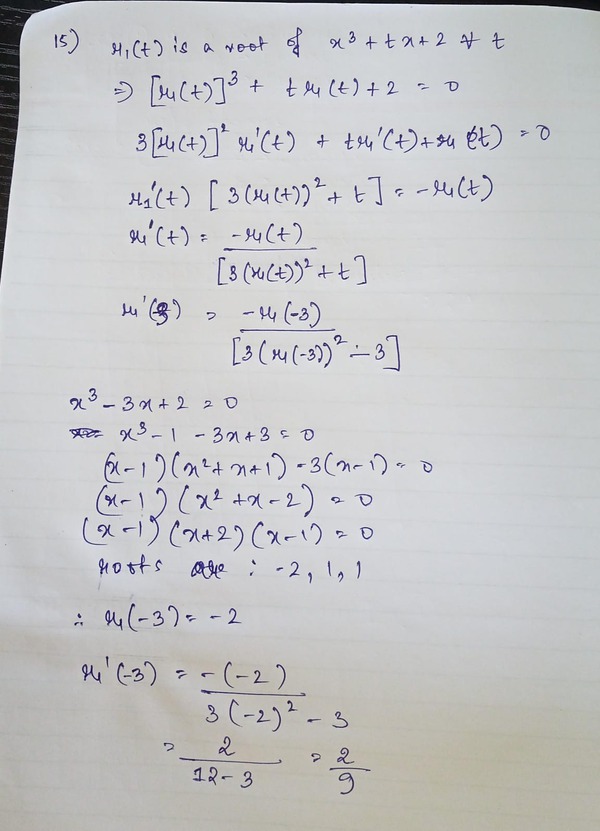 15) r₁(t) is a root of x³ + tx + 2 ∀ t
⇒ [r₁(t)]³ + t r₁(t) + 2 = 0
3[r₁(t)]² r₁'(t) + t r₁'(t) + r₁(t) = 0
r₁'(t) [3(r₁(t))² + t] = -r₁(t)
r₁'(t) = -r₁(t) / [3(r₁(t))² + t]
r₁'(3) = -r₁(-3) / [3(r₁(-3))² - 3]
x³ - 3x + 2 = 0
x³ - 1 - 3x + 3 = 0
(x-1)(x² + x + 1) - 3(x-1) = 0
(x-1)(x² + x - 2) = 0
(x-1)(x+2)(x-1) = 0
roots are : -2, 1, 1
∴ r₁(-3) = -2
r₁'(-3) = -(-2) / 3(-2)² - 3
= 2 / 12-3 = 2/9